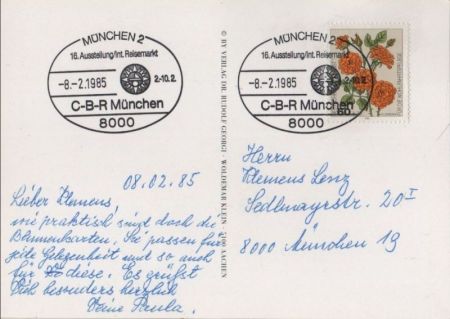 MÜNCHEN 2
16. Ausstellung/Int. Reisemarkt
-8.-2.1985
2-10.2.
C-B-R München
8000
MÜNCHEN 2
16. Ausstellung/Int. Reisemarkt
-8.-2.1985
2-10.2.
C-B-R München
8000
60
© BY VERLAG DR. RUDOLF GEORGI · WOLDEMAR KLEIN · 5100 AACHEN
08.02.85
Lieber Klemens,
wie praktisch sind doch die
Blumenkarten. Sie passen für
jede Gelegenheit und so auch
für diese. Es grüßt
Dich besonders herzlich
Deine Paula.
Herrn
Klemens Lenz
Sedlmayrstr. 20 I
8000 München 19